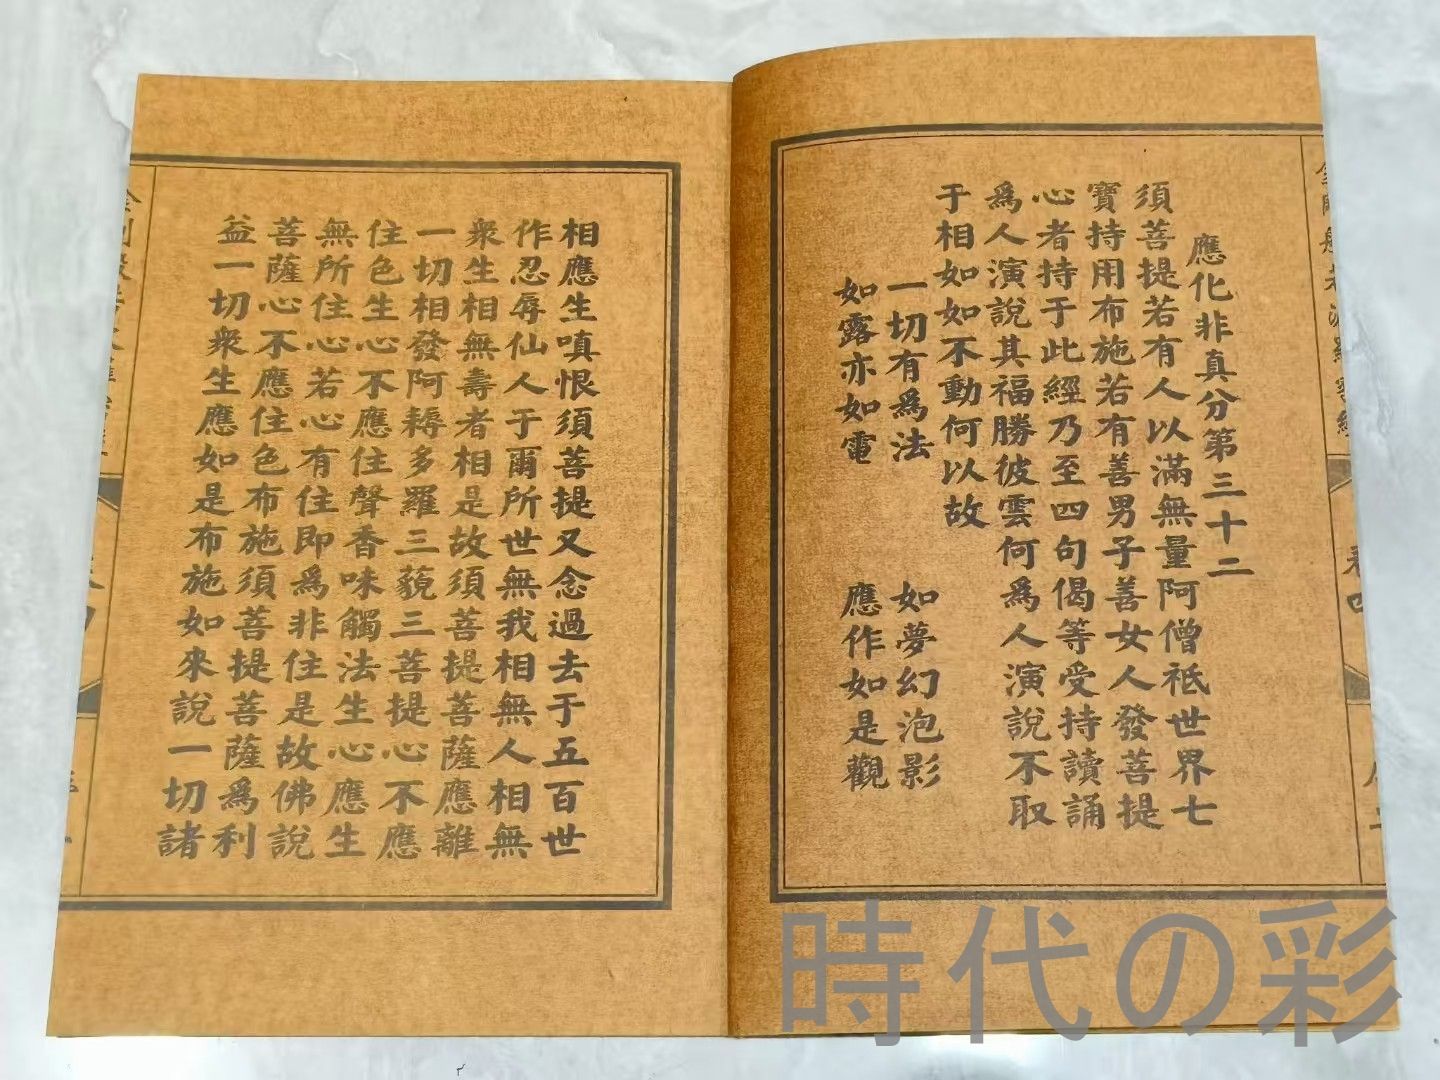 金剛般若波羅蜜經
卷四
應化非真分第三十二
須菩提若有人以滿無量阿僧祇世界七
寶持用布施若有善男子善女人發菩提
心者持于此經乃至四句偈等受持讀誦
爲人演說其福勝彼雲何爲人演說不取
于相如如不動何以故
一切有爲法　如夢幻泡影
如露亦如電　應作如是觀
相應生嗔恨須菩提又念過去于五百世
作忍辱仙人于爾所世無我相無人相無
衆生相無壽者相是故須菩提菩薩應離
一切相發阿耨多羅三藐三菩提心不應
住色生心不應住聲香味觸法生心應生
無所住心若心有住即爲非住是故佛說
菩薩心不應住色布施須菩提菩薩爲利
益一切衆生應如是布施如來說一切諸
時代の彩